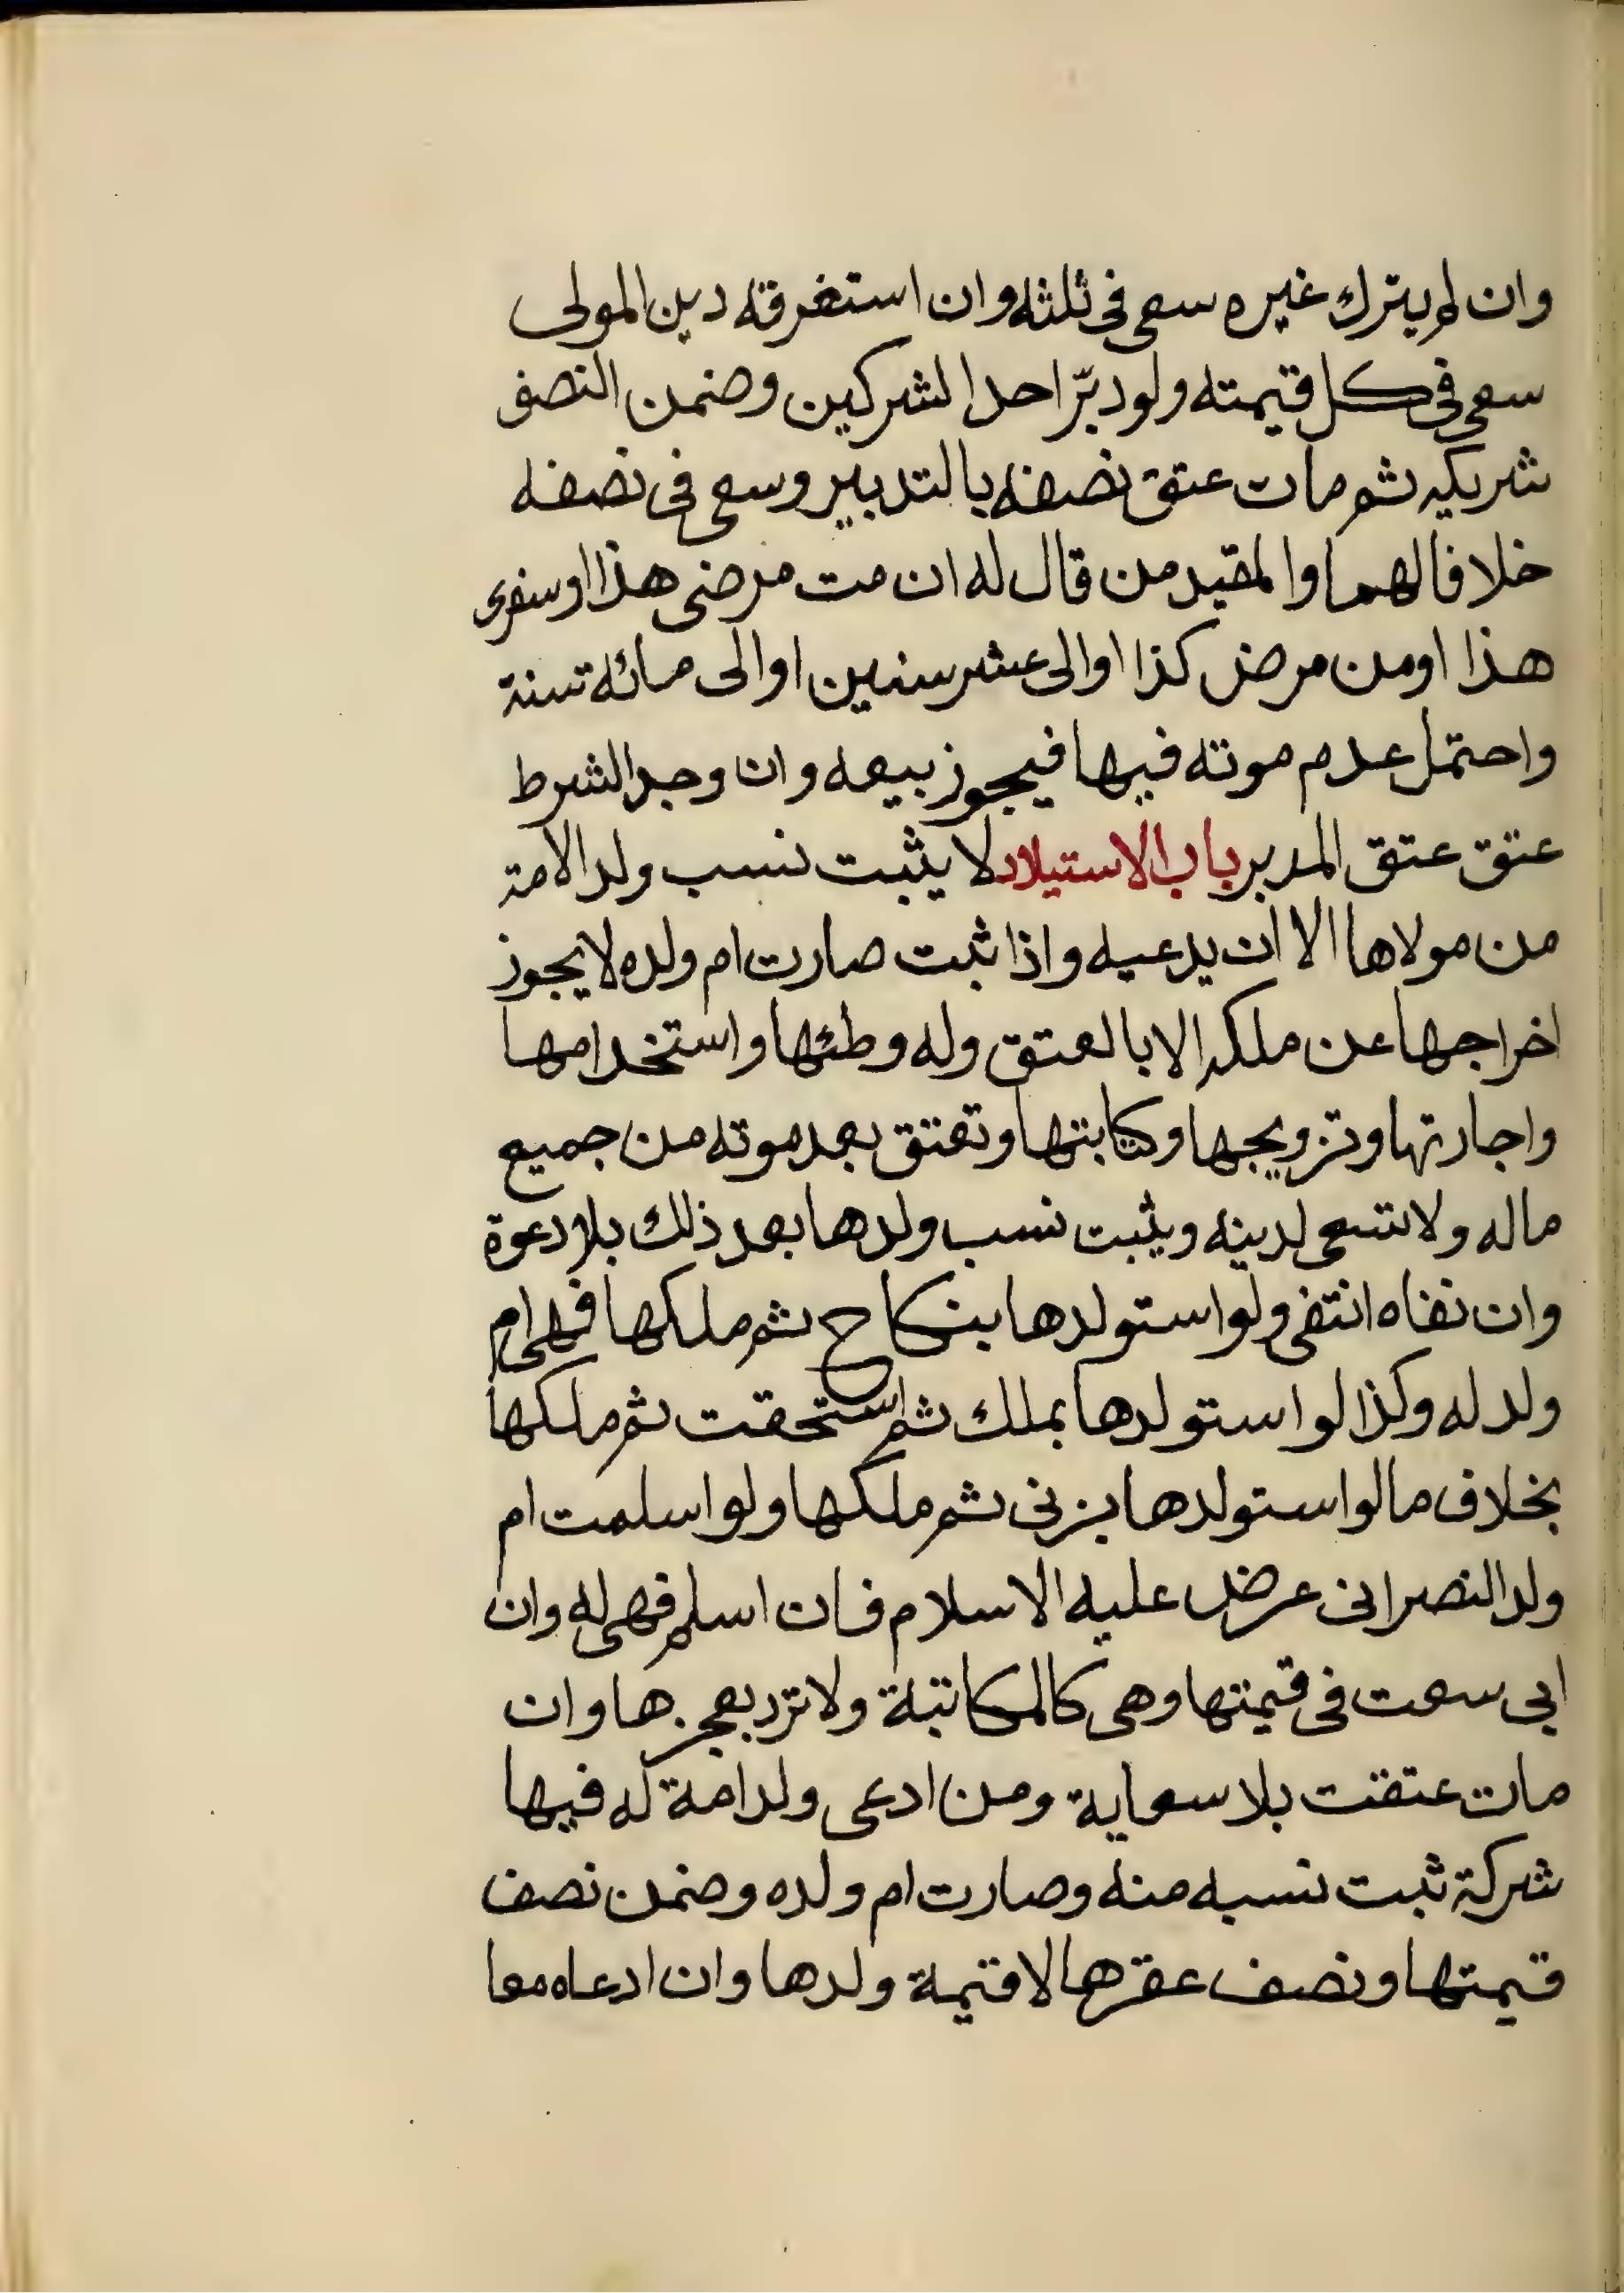 وان لم يترك غيره سعى فى ثلثه وان استغرقه دين المولى
سعى فى كل قيمته ولو دبّر احد الشركين وضمن النصف
شريكه ثم مات عتق نصفه بالتدبير وسعى فى نصفه
خلافا لهما والمقيد من قال له ان مت مرضى هذا او سفرى
هذا او من مرض كذا او الى عشر سنين او الى مائة سنة
واحتمل عدم موته فيها فيجوز بيعه وان وجد الشرط
عتق عتق المدبر باب الاستيلاد لا يثبت نسب ولد الامة
من مولاها الا ان يدعيه واذا ثبت صارت ام ولده لا يجوز
اخراجها عن ملكه الا بالعتق وله وطئها واستخدامها
واجارتها وتزويجها وكتابتها وتعتق بعد موته من جميع
ماله ولا تسعى لدينه ويثبت نسب ولدها بعد ذلك بلا دعوة
وان نفاه انتفى ولو استولدها بنكاح ثم ملكها فهى ام
ولد له وكذا لو استولدها بملك ثم استحقت ثم ملكها
بخلاف ما لو استولدها بزنى ثم ملكها ولو اسلمت ام
ولد النصرانى عرض عليه الاسلام فان اسلم فهى له وان
ابى سعت فى قيمتها وهى كالمكاتبة ولا ترد بعجزها وان
مات عتقت بلا سعاية ومن ادعى ولد امة له فيها
شركة ثبت نسبه منه وصارت ام ولده وضمن نصف
قيمتها ونصف عقرها لا قيمة ولدها وان ادعاه معا